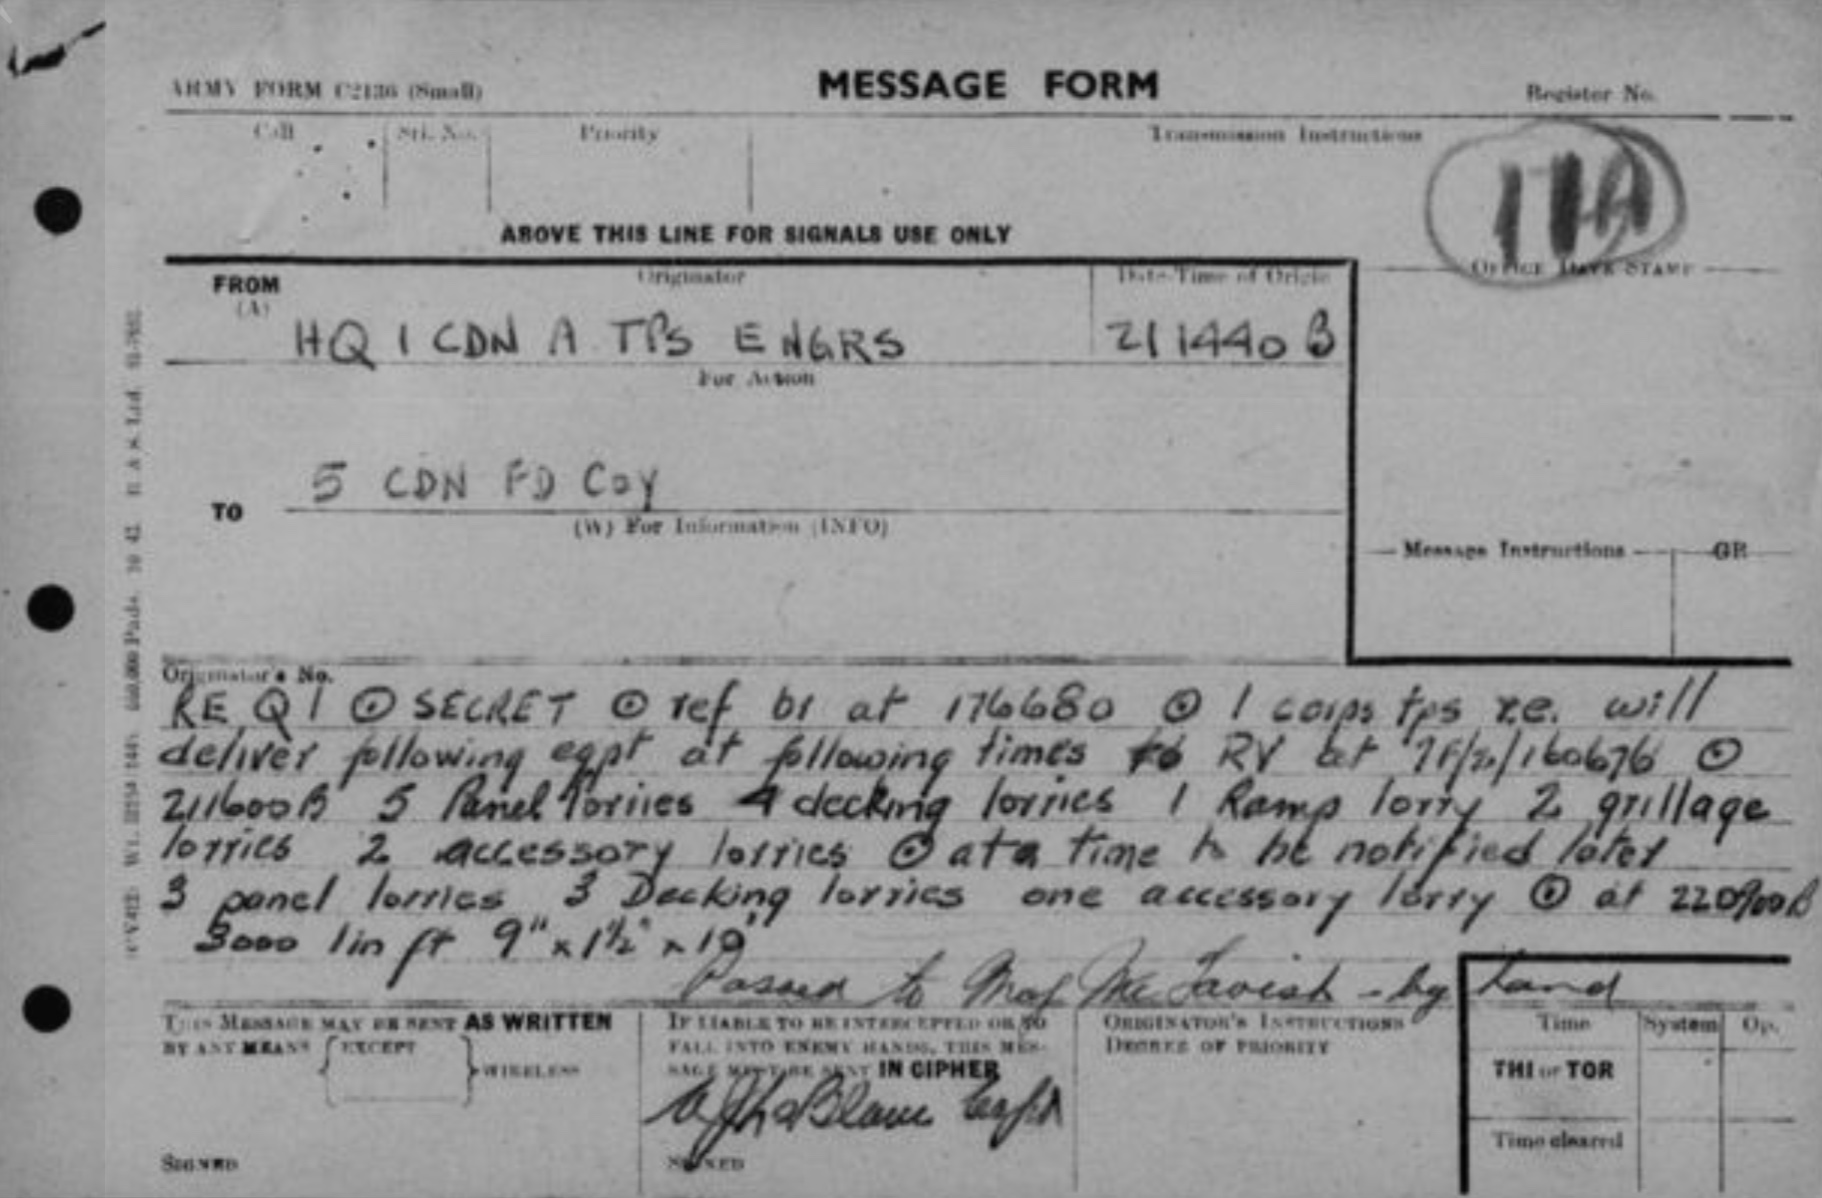 ARMY FORM C2136 (Small)
MESSAGE FORM
Register No.
Call
Srl. No.
Priority
Transmission Instructions
11A
ABOVE THIS LINE FOR SIGNALS USE ONLY
FROM
(A)
Originator
Date-Time of Origin
OFFICE DATE STAMP
HQ 1 CDN A TPS ENGRS
211440 B
For Action
5 CDN FD COY
TO
(W) For Information (INFO)
Message Instructions
GR
Originator's No.
RE Q 1 ⊙ SECRET ⊙ ref br at 176680 ⊙ 1 corps tps r.e. will
deliver following eqpt at following times to RV at 160676 ⊙
211600B 5 Panel lorries 4 decking lorries 1 Ramp lorry 2 grillage
lorries 2 accessory lorries ⊙ at a time to be notified later
3 panel lorries 3 Decking lorries one accessory lorry ⊙ at 220900B
3000 lin ft 9" x 1½" x 10'
Passed to Maj McTavish - by hand
THIS MESSAGE MAY BE SENT AS WRITTEN
BY ANY MEANS EXCEPT WIRELESS
SIGNED
IF LIABLE TO BE INTERCEPTED OR TO
FALL INTO ENEMY HANDS, THIS MES-
SAGE MUST BE SENT IN CIPHER
Capt
SIGNED
ORIGINATOR'S INSTRUCTIONS
DEGREE OF PRIORITY
Time
System
Op.
THI or TOR
Time cleared